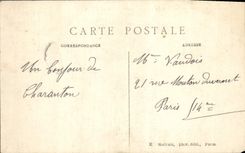 CARTE POSTALE
CORRESPONDANCE
ADRESSE
Un bonjour de
Charanton
Mr. Vaudois
21 rue Mouton duvernet
Paris (14me
E. Malcuit, phot.-édit., Paris